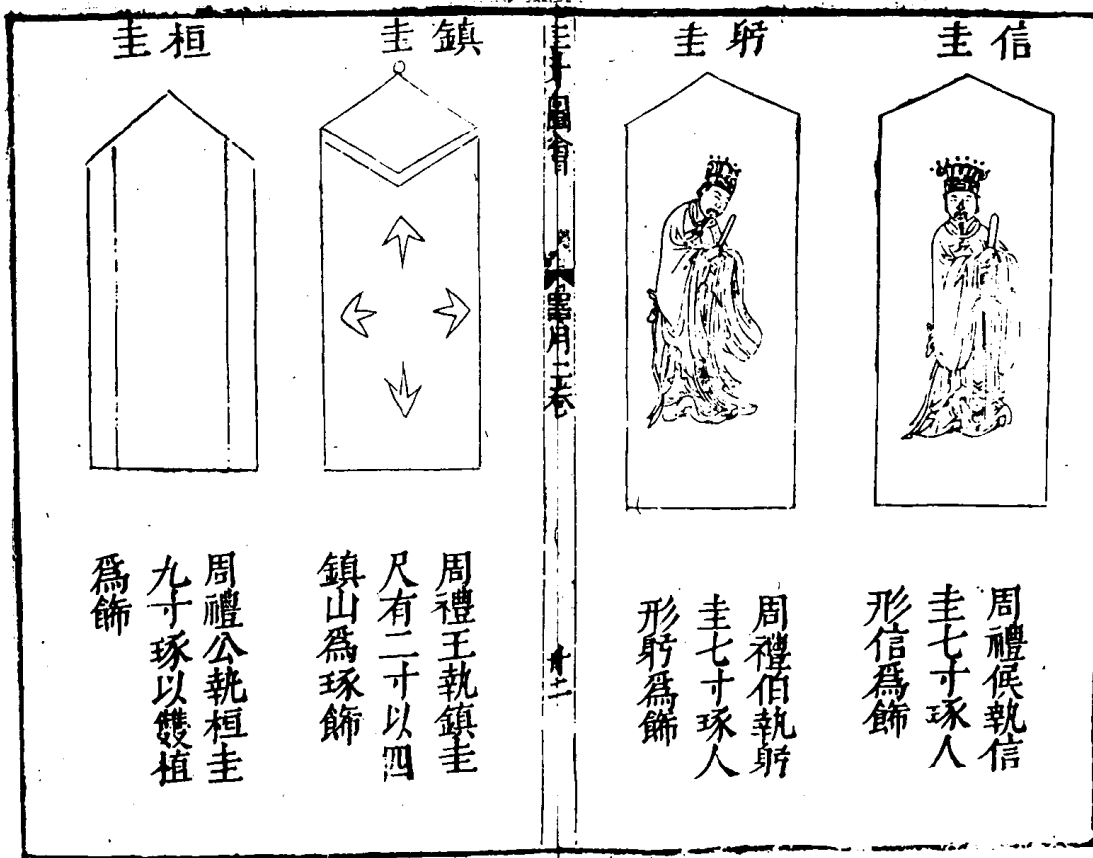 信圭
周禮侯執信
圭七寸琢人
形信爲飾
躬圭
周禮伯執躬
圭七寸琢人
形躬爲飾
三才圖會
器用二卷
鎮圭
周禮王執鎮圭
尺有二寸以四
鎮山爲琢飾
桓圭
周禮公執桓圭
九寸琢以雙植
爲飾